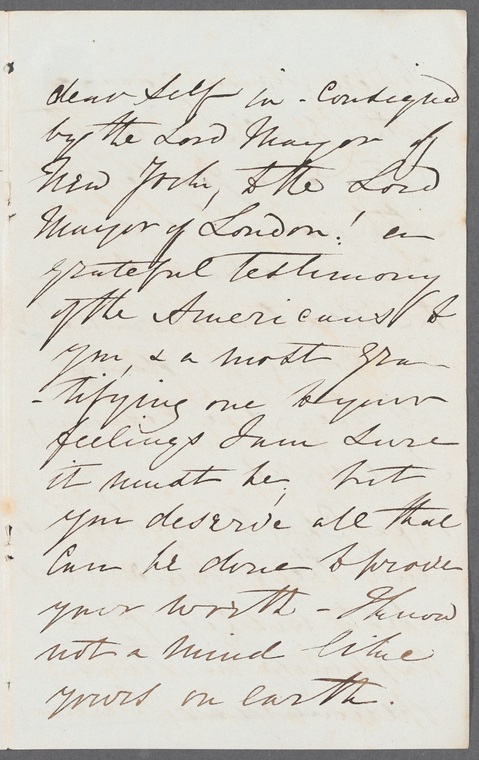 dear self in - Consigned
by the Lord Mayor of
New York, to the Lord
Mayor of London! a
grateful testimony
of the Americans to
you, & a most gra-
-tifying one to your
feelings I am sure
it must be, but
you deserve all that
Can be done to prove
your worth - I know
not a mind like
yours on earth.